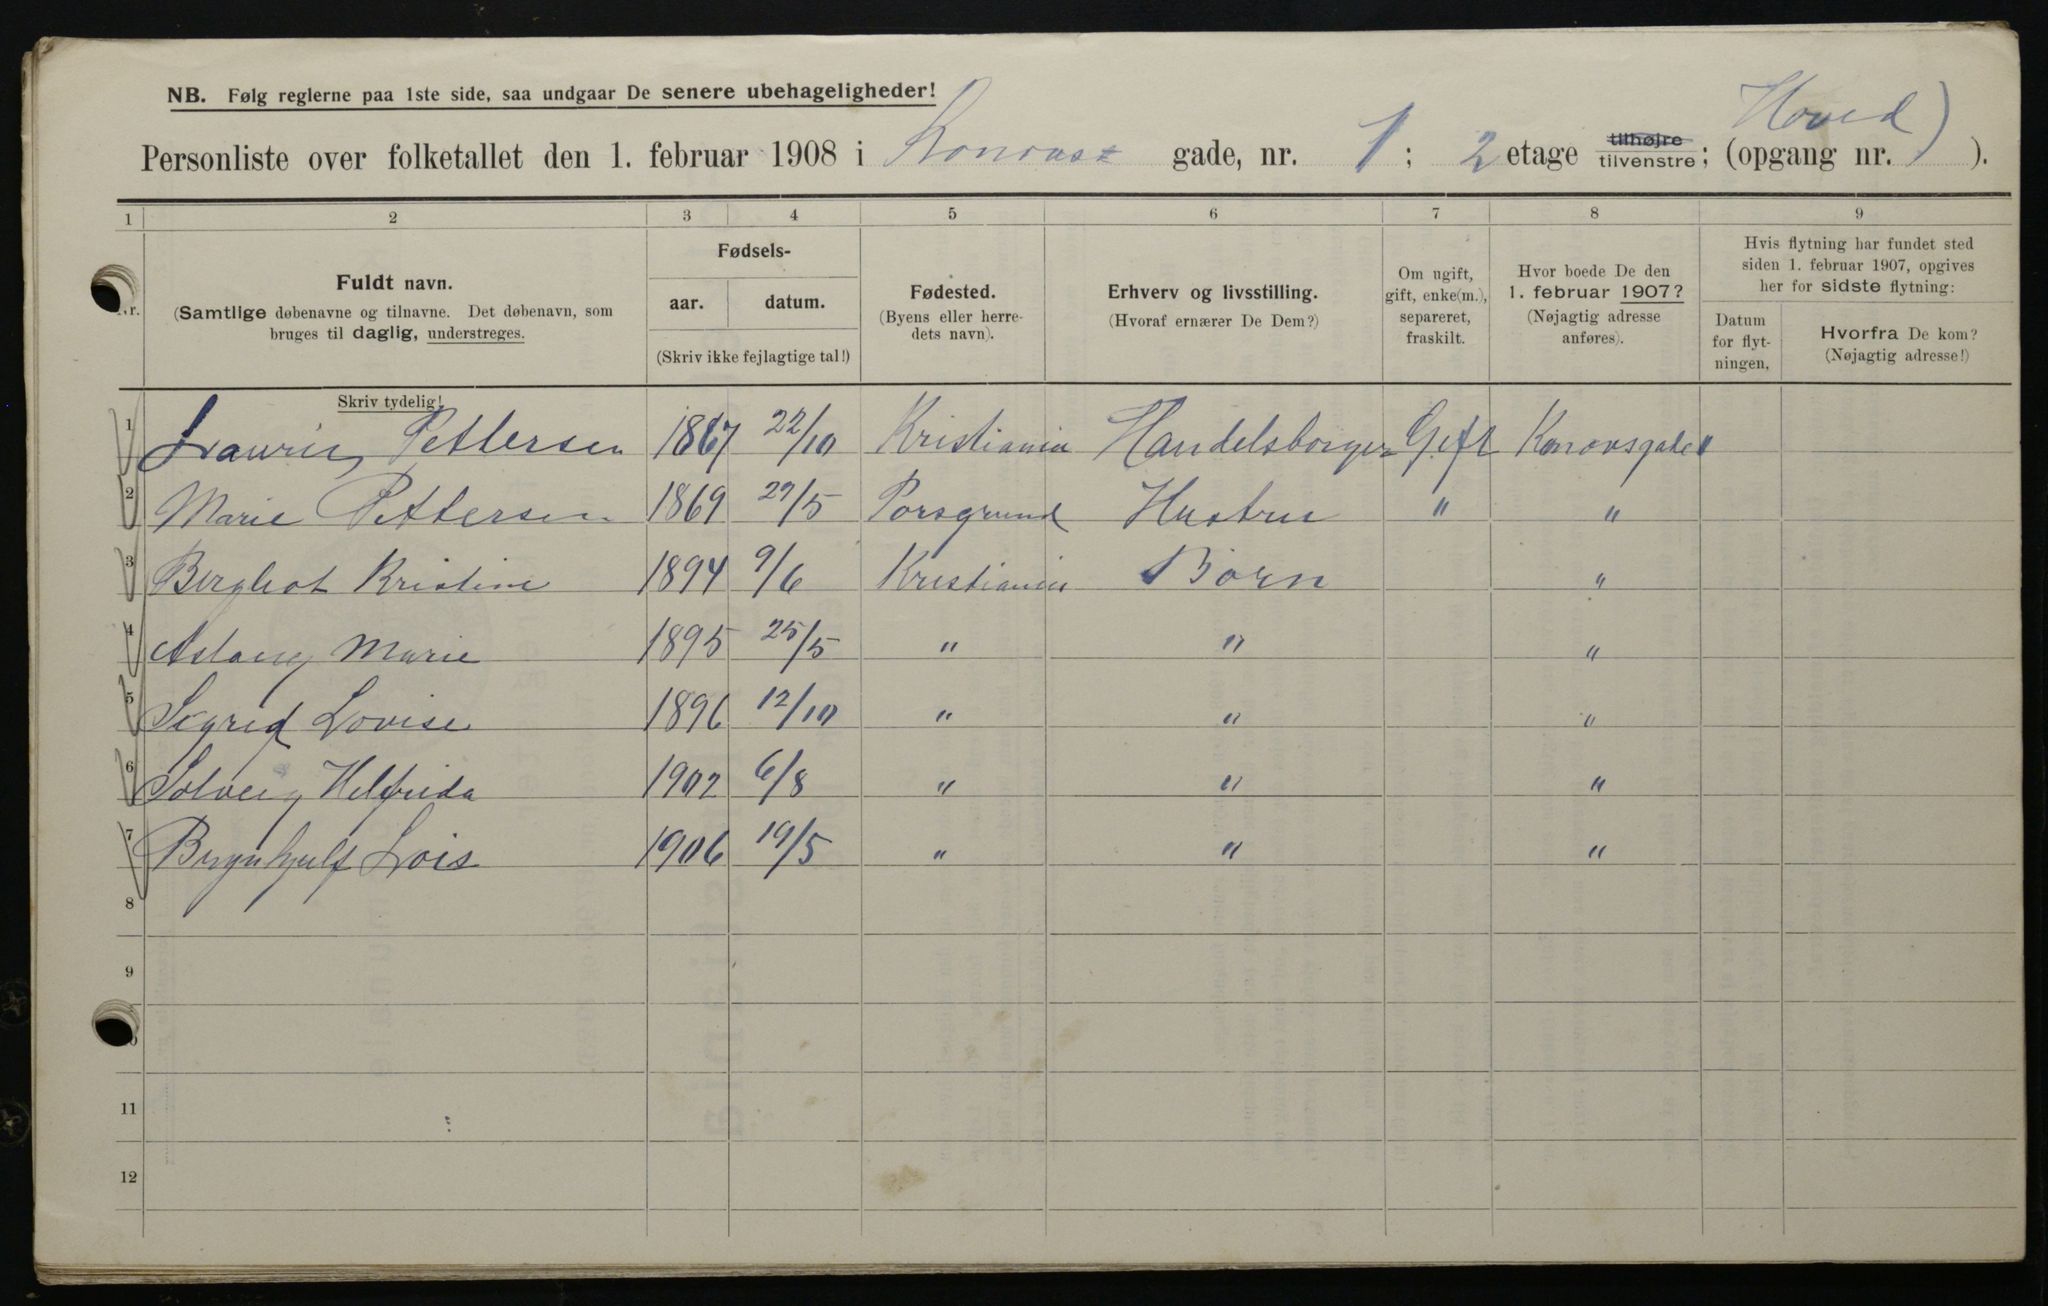 NB. Følg reglerne paa 1ste side, saa undgaar De senere ubehageligheder!
Hoved
Personliste over folketallet den 1. februar 1908 i Konows gade, nr. 1; 2 etage tilhøjre tilvenstre; (opgang nr. ).
1 2 3 4 5 6 7 8 9
Nr.
Fuldt navn.
(Samtlige døbenavne og tilnavne. Det døbenavn, som
bruges til daglig, understreges.
Skriv tydelig!
Fødsels-
aar. datum.
(Skriv ikke fejlagtige tal!)
Fødested.
(Byens eller herre-
dets navn).
Erhverv og livsstilling.
(Hvoraf ernærer De Dem?)
Om ugift,
gift, enke(m.),
separeret,
fraskilt.
Hvor boede De den
1. februar 1907?
(Nøjagtig adresse
anføres).
Hvis flytning har fundet sted
siden 1. februar 1907, opgives
her for sidste flytning:
Datum
for flyt-
ningen,
Hvorfra De kom?
(Nøjagtig adresse!)
1 Lauritz Pettersen 1867 22/10 Kristiania Handelsborger Gift Konowsgade 1
2 Marie Pettersen 1869 29/5 Porsgrund Hustru " "
3 Bergliot Kristine 1894 9/6 Kristiania Børn "
4 Aslaug Marie 1895 25/5 " " "
5 Sigrid Lovise 1896 12/10 " " "
6 Solveig Helfrida 1902 6/8 " " "
7 Brynhjulf Lois 1906 19/5 " " "
8
9
11
12